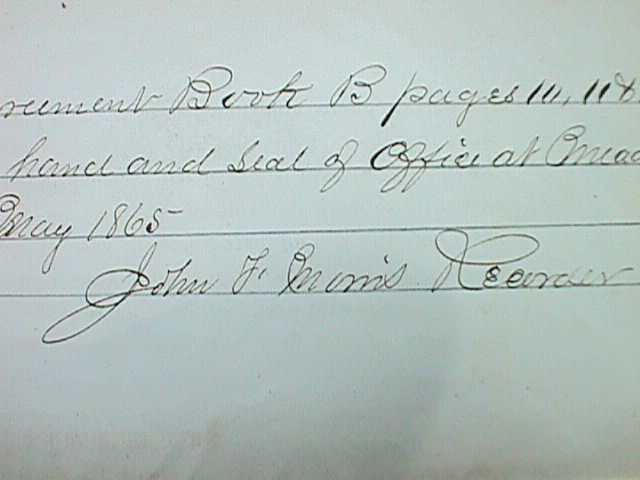 reement Book B pages 111, 118
hand and Seal of Office at Mead
May 1865
John F. Morris Recorder